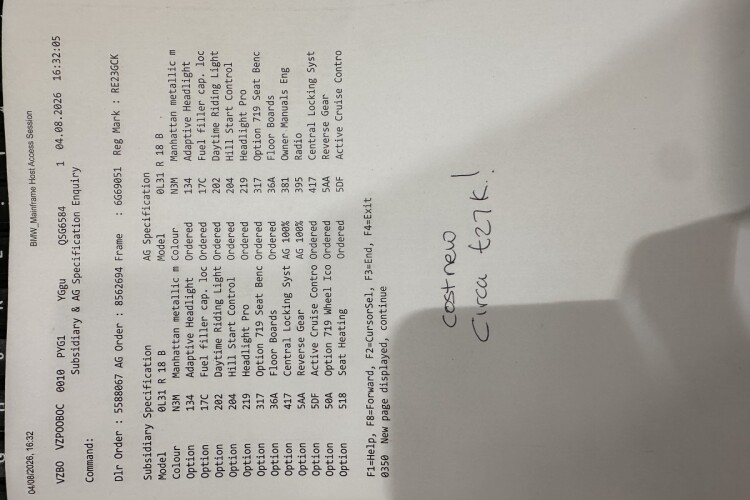 04/08/2026, 16:32 BMW_Mainframe Host Access Session
VZBO VZPOOBOC 0010 PYG1 YGgu QSG6584 1 04.08.2026 16:32:05
Subsidiary & AG Specification Enquiry
Command:
Dlr Order : 5588067 AG Order : 8562694 Frame : 6G69051 Reg Mark : RE23GCK
Subsidiary Specification AG Specification
Model 0L31 R 18 B Model 0L31 R 18 B
Colour N3M Manhattan metallic m Colour N3M Manhattan metallic m
Option 134 Adaptive Headlight Ordered 134 Adaptive Headlight
Option 17C Fuel filler cap. loc Ordered 17C Fuel filler cap. loc
Option 202 Daytime Riding Light Ordered 202 Daytime Riding Light
Option 204 Hill Start Control Ordered 204 Hill Start Control
Option 219 Headlight Pro Ordered 219 Headlight Pro
Option 317 Option 719 Seat Benc Ordered 317 Option 719 Seat Benc
Option 36A Floor Boards Ordered 36A Floor Boards
Option 417 Central Locking Syst AG 100% 381 Owner Manuals Eng
Option 5AA Reverse Gear AG 100% 395 Radio
Option 5DF Active Cruise Contro Ordered 417 Central Locking Syst
Option 58A Option 719 Wheel Ico Ordered 5AA Reverse Gear
Option 518 Seat Heating Ordered 5DF Active Cruise Contro
F1=Help, F8=Forward, F2=CursorSel, F3=End, F4=Exit
0350 New page displayed, continue
cost new
Circa £27K!